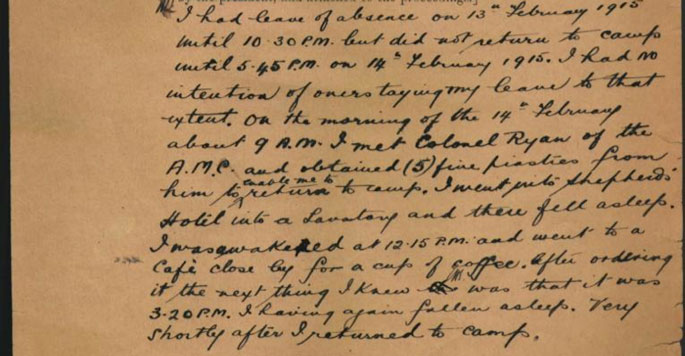 by the president, and annexed to the proceedings.]
I had leave of absence on 13th February 1915
until 10.30 P.M. but did not return to camp
until 5.45 P.M. on 14th February 1915. I had no
intention of overstaying my leave to that
extent. On the morning of the 14th February
about 9 A.M. I met Colonel Ryan of the
A.M.C. and obtained (5) five piastres from
him to enable me to return to camp. I went into Shepherds'
Hotel into a Lavatory and there fell asleep.
I was awakened at 12.15 P.M. and went to a
Café close by for a cup of coffee. After ordering
it the next thing I knew was that it was
3.20 P.M. I having again fallen asleep. Very
shortly after I returned to camp.